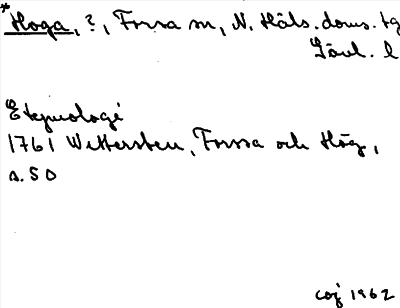 *Hoga, ?, Forsa sn, N. Häls. doms. tg
Gävl. l
Etymologi
1761 Wettersten, Forssa och Hög,
s. 50
coj 1962